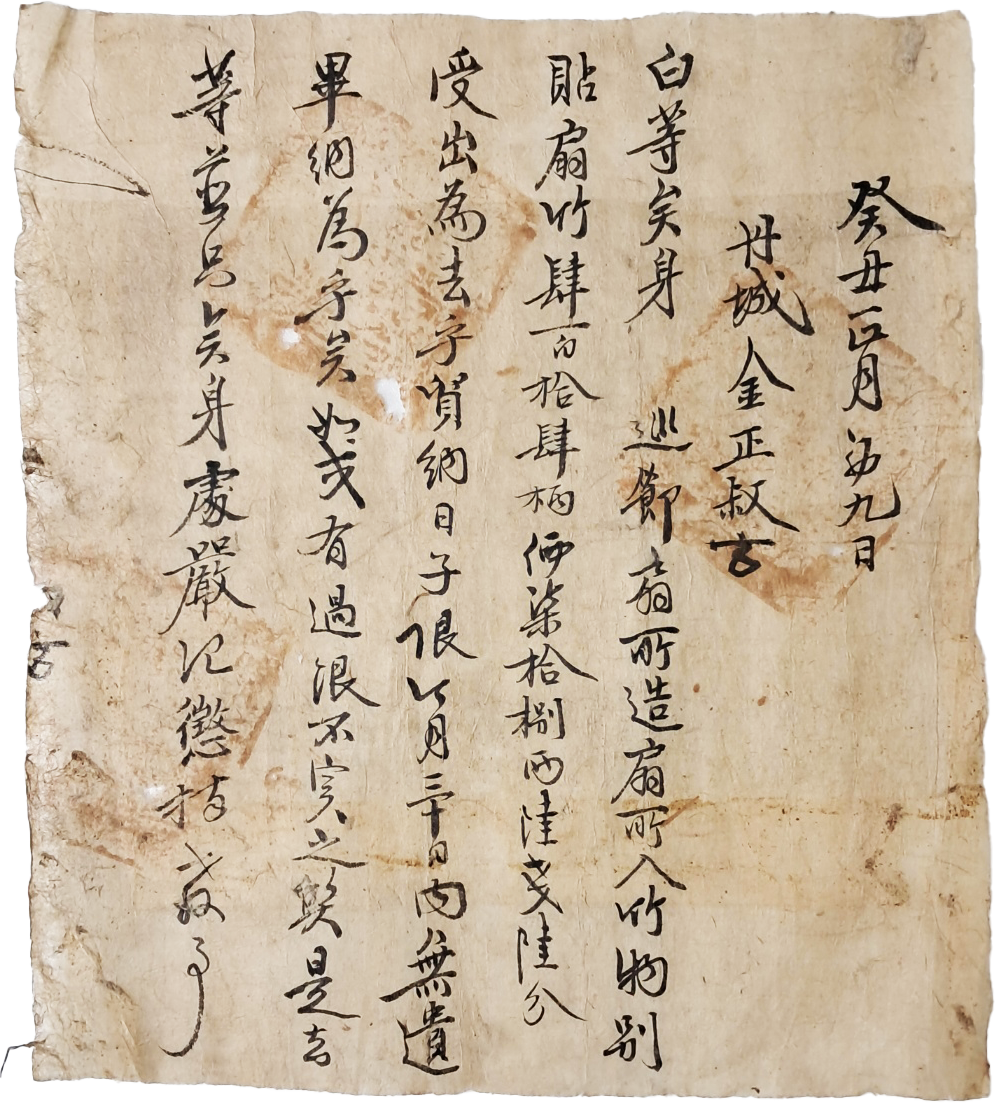 癸丑正月初九日
丹城金正叔古
白等矣身 巡節扇所造扇所入竹物別
貼扇竹肆百拾肆柄価柒拾捌両陸戔陸分
受出為去乎貿納日子限今月三十日内無遺
畢納為乎矣如或有過限不実之弊是去
等並只矣身處嚴治懲捧教事